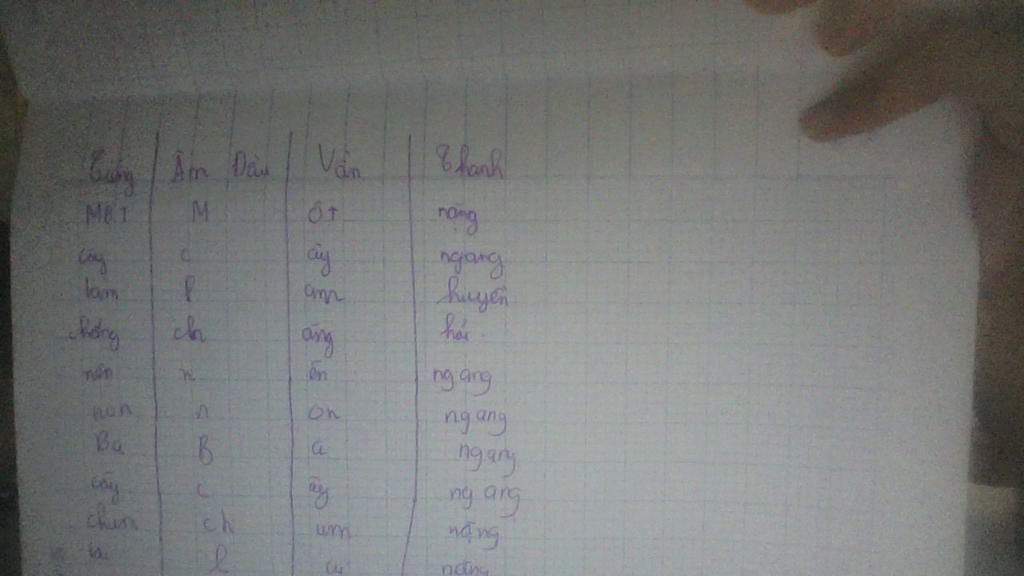 Tiếng Âm Đầu Vần Thanh
Một M ột nặng
cây c ây ngang
làm l am huyền
chẳng ch ăng hỏi
nên n ên ngang
non n on ngang
Ba B a ngang
cây c ây ngang
chụm ch um nặng
l ai nặng